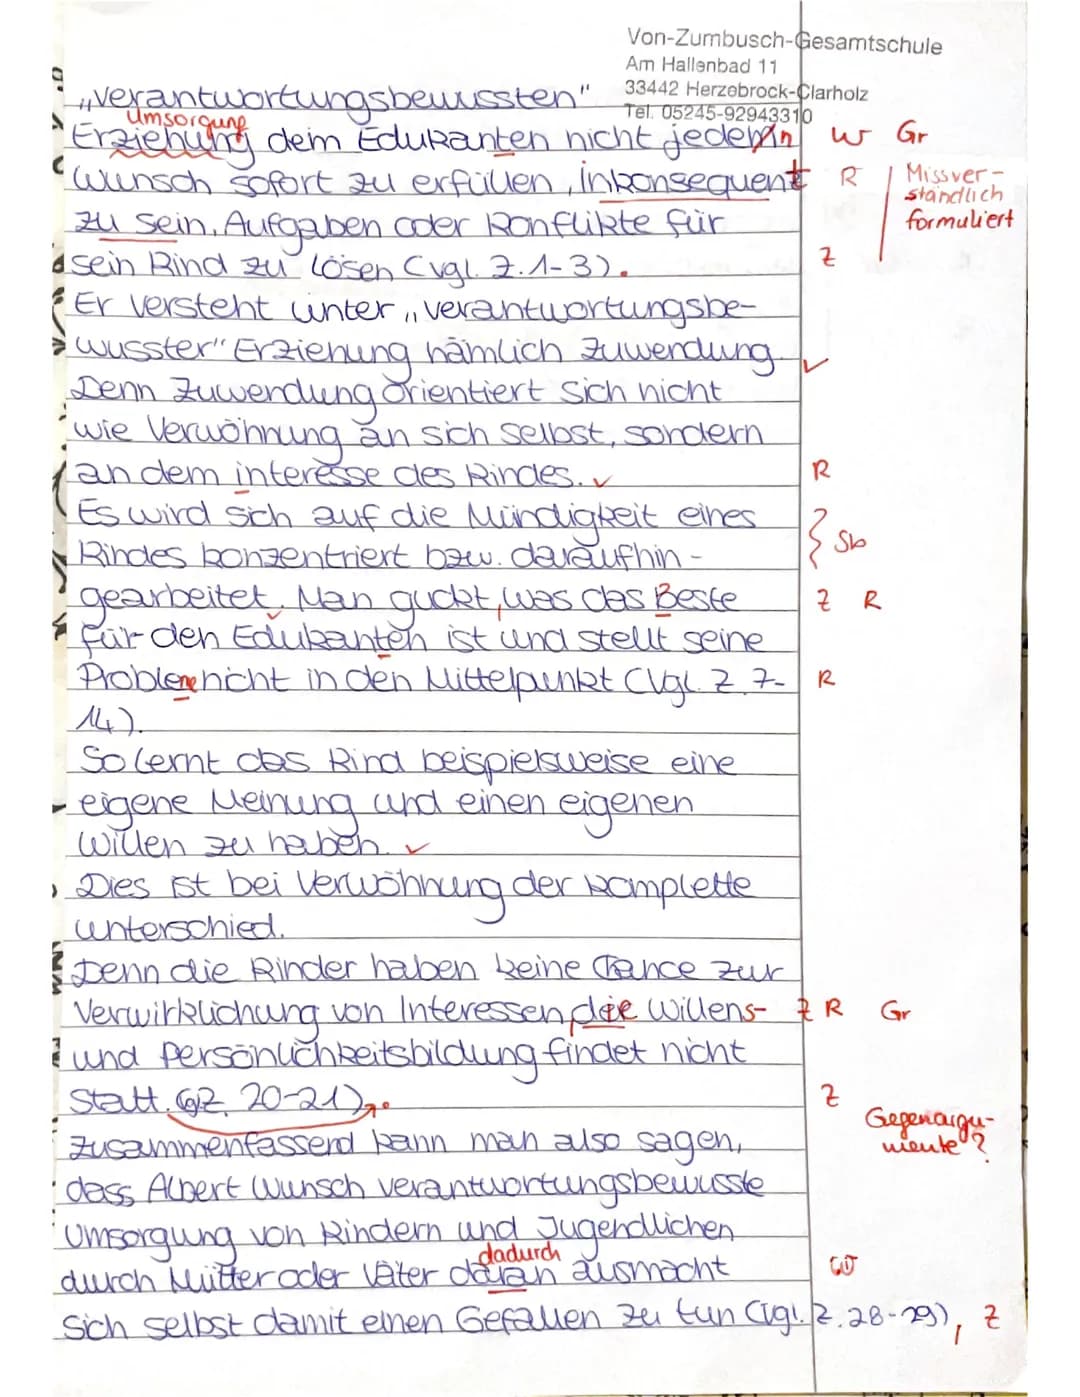 Von-Zumbusch-Gesamtschule
Am Hallenbad 11
33442 Herzebrock-Clarholz
Tel. 05245-92943310
„verantwortungsbewussten"
Umsorgung
Erziehung dem Edukanten nicht jeden W Gr
Wunsch sofort zu erfüllen, inkonsequent R
Missver-
ständlich
formuliert
zu sein, Aufgaben oder Konflikte für
sein Kind zu lösen (vgl. Z. 1-3). Z
Er versteht unter „verantwortungsbe-
wusster" Erziehung nämlich Zuwendung. ✓
Denn Zuwendung orientiert sich nicht
wie Verwöhnung an sich selbst, sondern
an dem interesse des Kindes. ✓ R
Es wird sich auf die Mündigkeit eines
Kindes konzentriert bzw. daraufhin- Sb
gearbeitet. Man guckt, was das Beste Z R
für den Edukanten ist und stellt seine
Probleme nicht in den Mittelpunkt (vgl. Z. 7- R
14).
So lernt das Kind beispielsweise eine
eigene Meinung und einen eigenen
Willen zu haben. ✓
Dies ist bei Verwöhnung der komplette
unterschied.
Denn die Kinder haben keine Chance zur
Verwirklichung von Interessen, die Willens- Z R Gr
und Persönlichkeitsbildung findet nicht
statt. (Z. 20-21). Z
Gegenargu-
mente?
Zusammenfassend kann man also sagen,
dass Albert Wunsch verantwortungsbewusste
Umsorgung von Kindern und Jugendlichen
dadurch
durch Mütter oder Väter daran ausmacht W
sich selbst damit einen Gefallen zu tun (vgl. Z. 28-29), Z